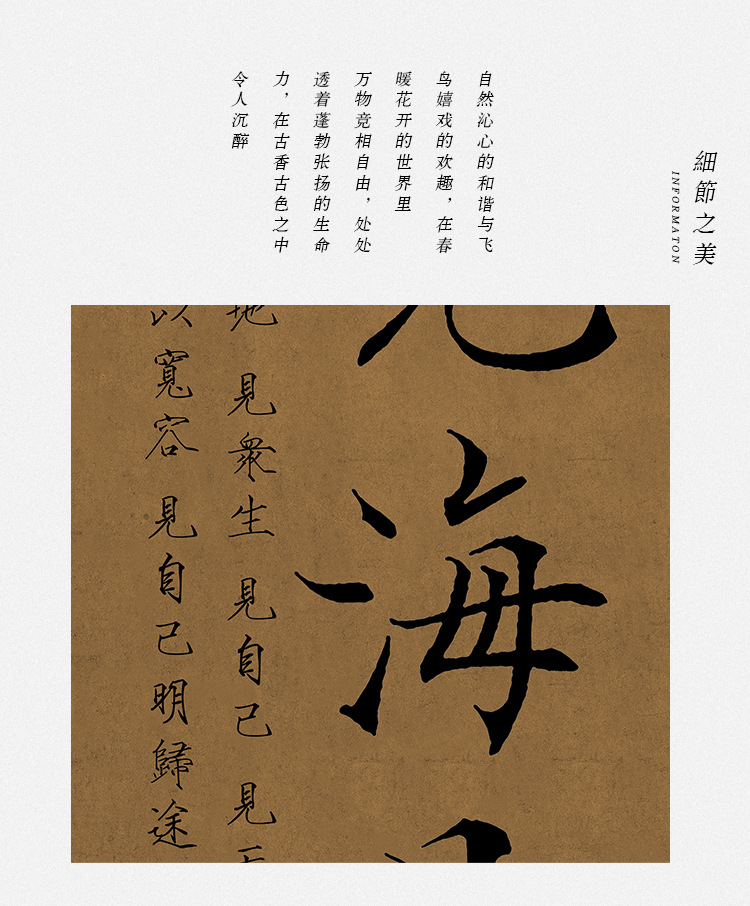 細節之美
INFORMATON
自然沁心的和谐与飞
鸟嬉戏的欢趣，在春
暖花开的世界里
万物竞相自由，处处
透着蓬勃张扬的生命
力，在古香古色之中
令人沉醉
海
地 見衆生 見自己 見
以寬容 見自己明歸途